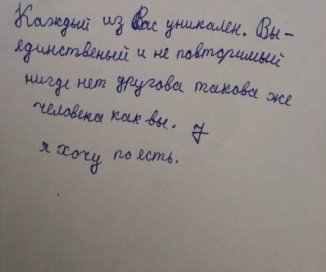 Каждый из Вас уникален. Вы-
единственый и не повторимый
нигде нет другова такова же
человека как вы.
я хочу поесть.